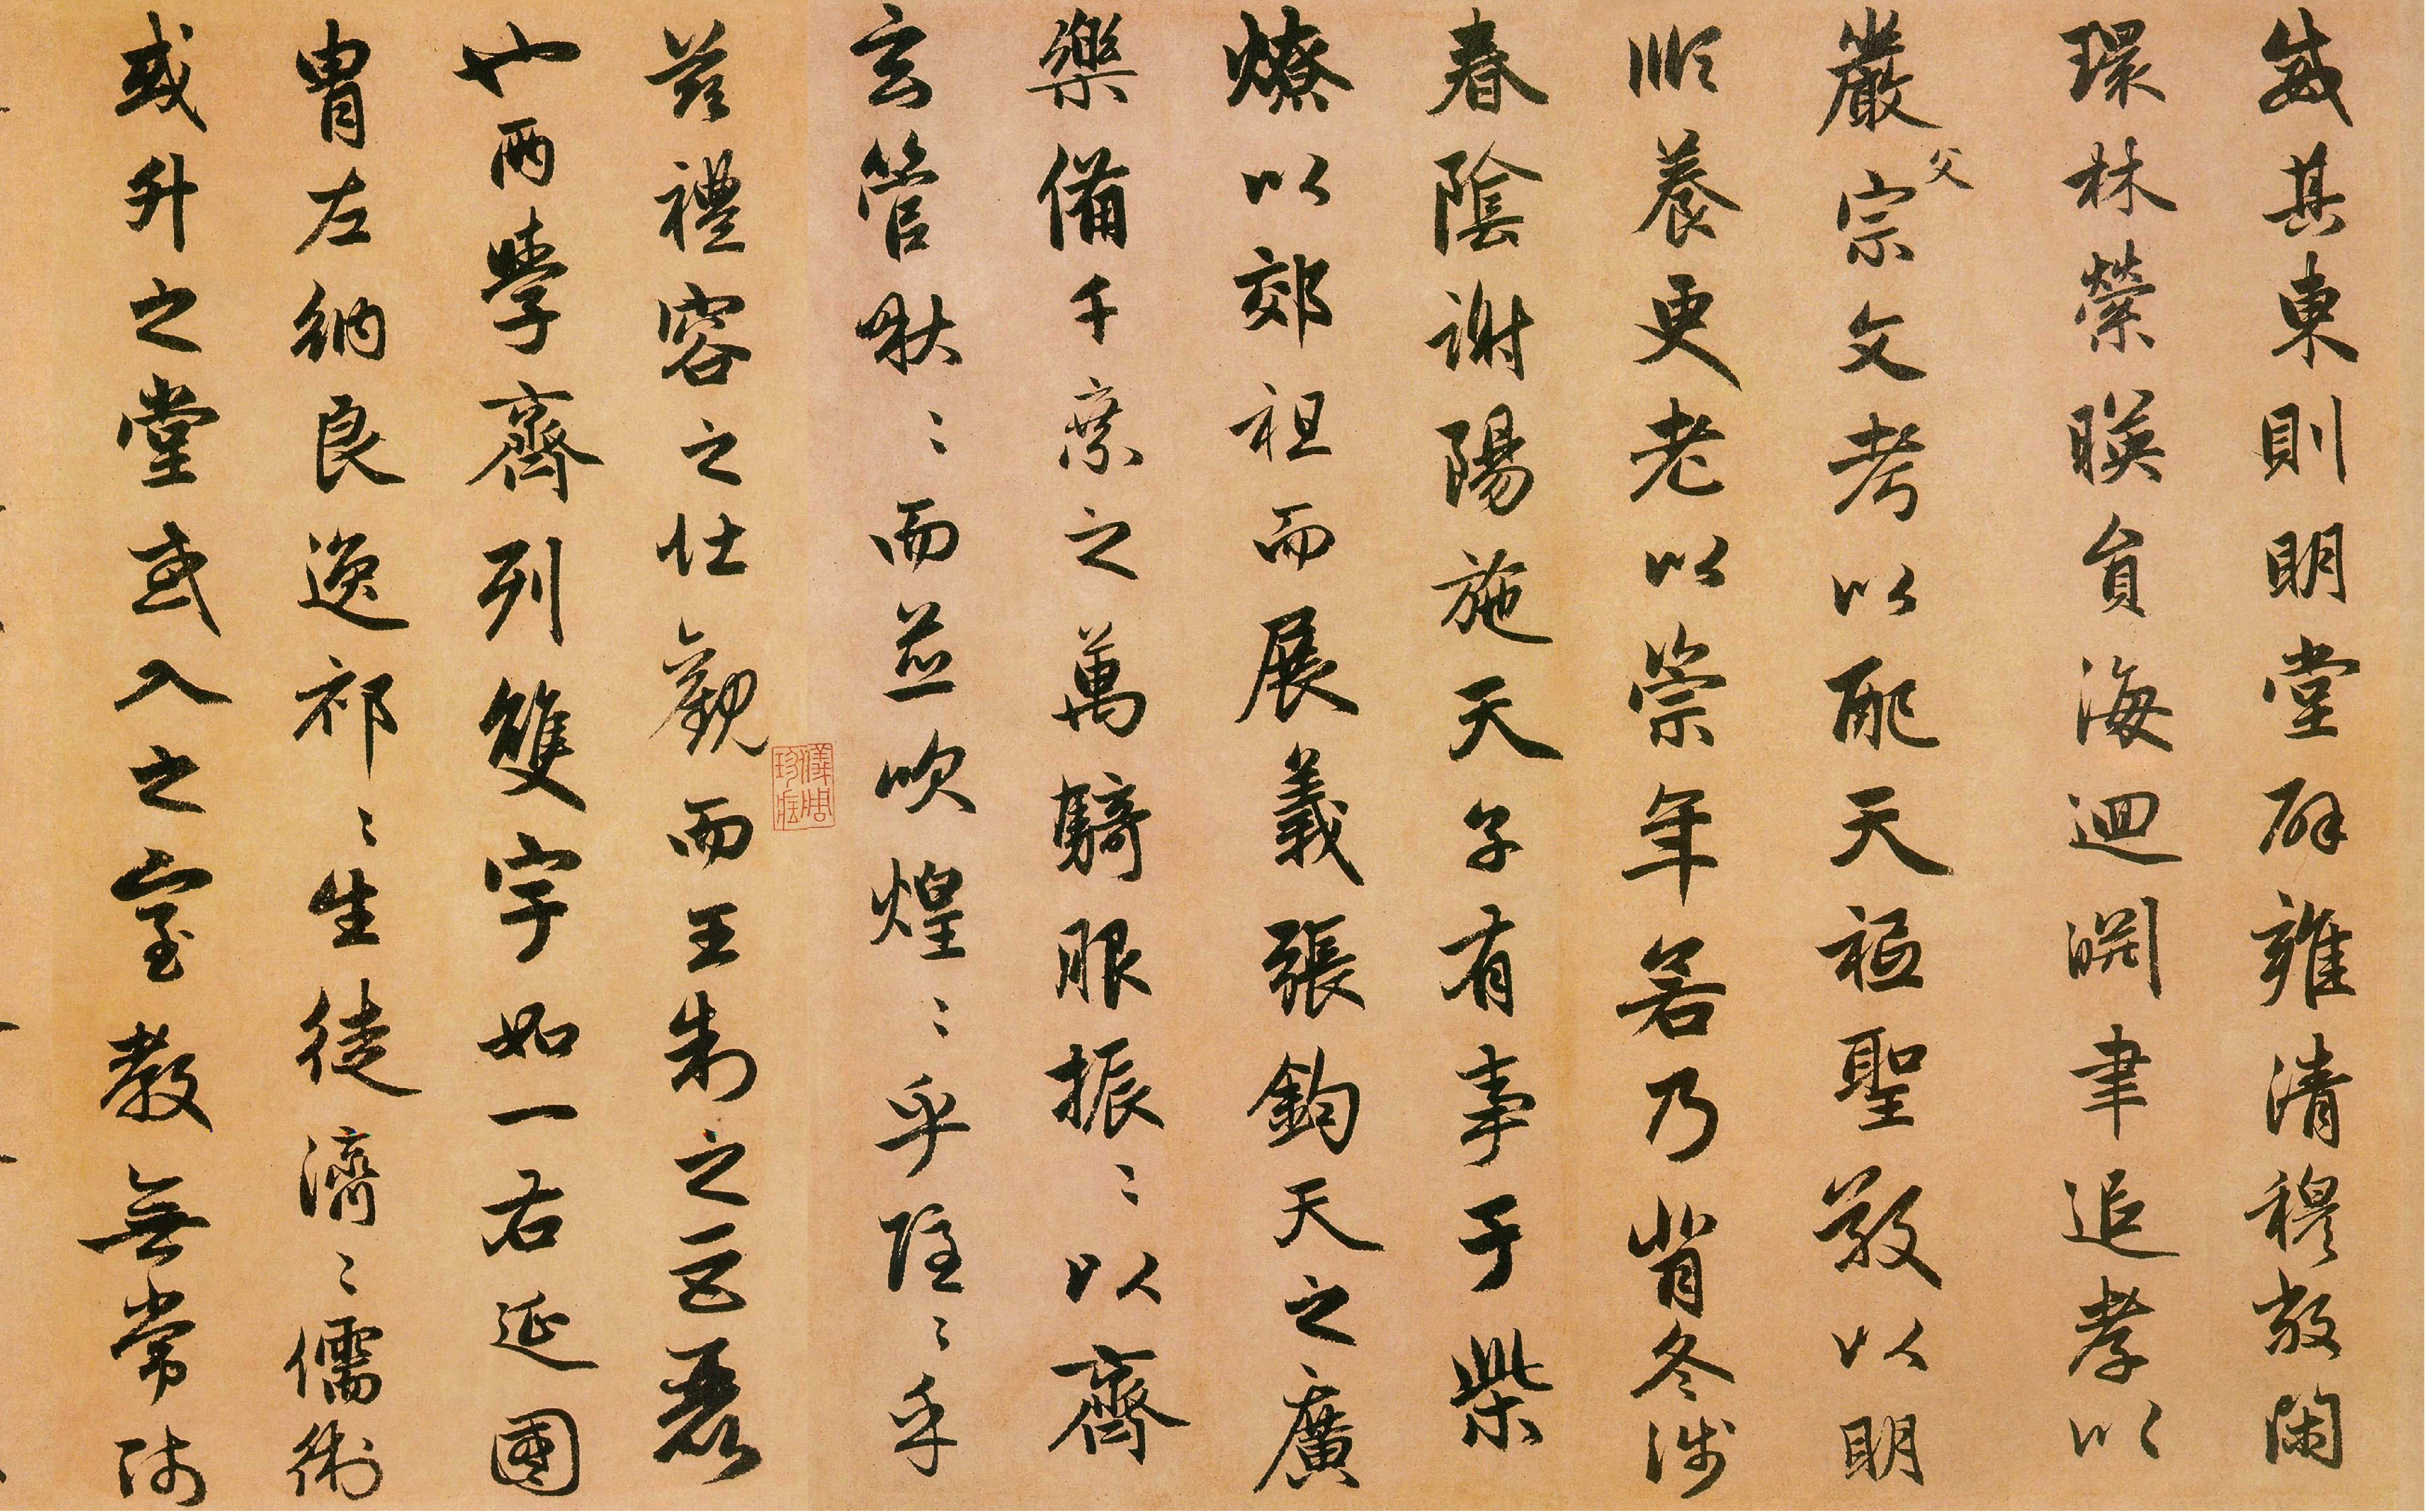 威其東則明堂辟雍清穆敞閑
環林縈暎員海迴淵聿追孝以
嚴父宗文考以配天祗聖敬以明
順養更老以崇年若乃背冬涉
春陰謝陽施天子有事于柴
燎以郊祖而展義張鈞天之廣
樂備千乘之萬騎服振〻以齊
玄管啾〻而並吹煌〻乎隱〻乎
茲禮容之壯觀而王制之巨麗
也兩學齊列雙宇如一右延國
胄左納良逸祁〻生徒濟〻儒術
或升之堂或入之室教無常師
儀周珍藏